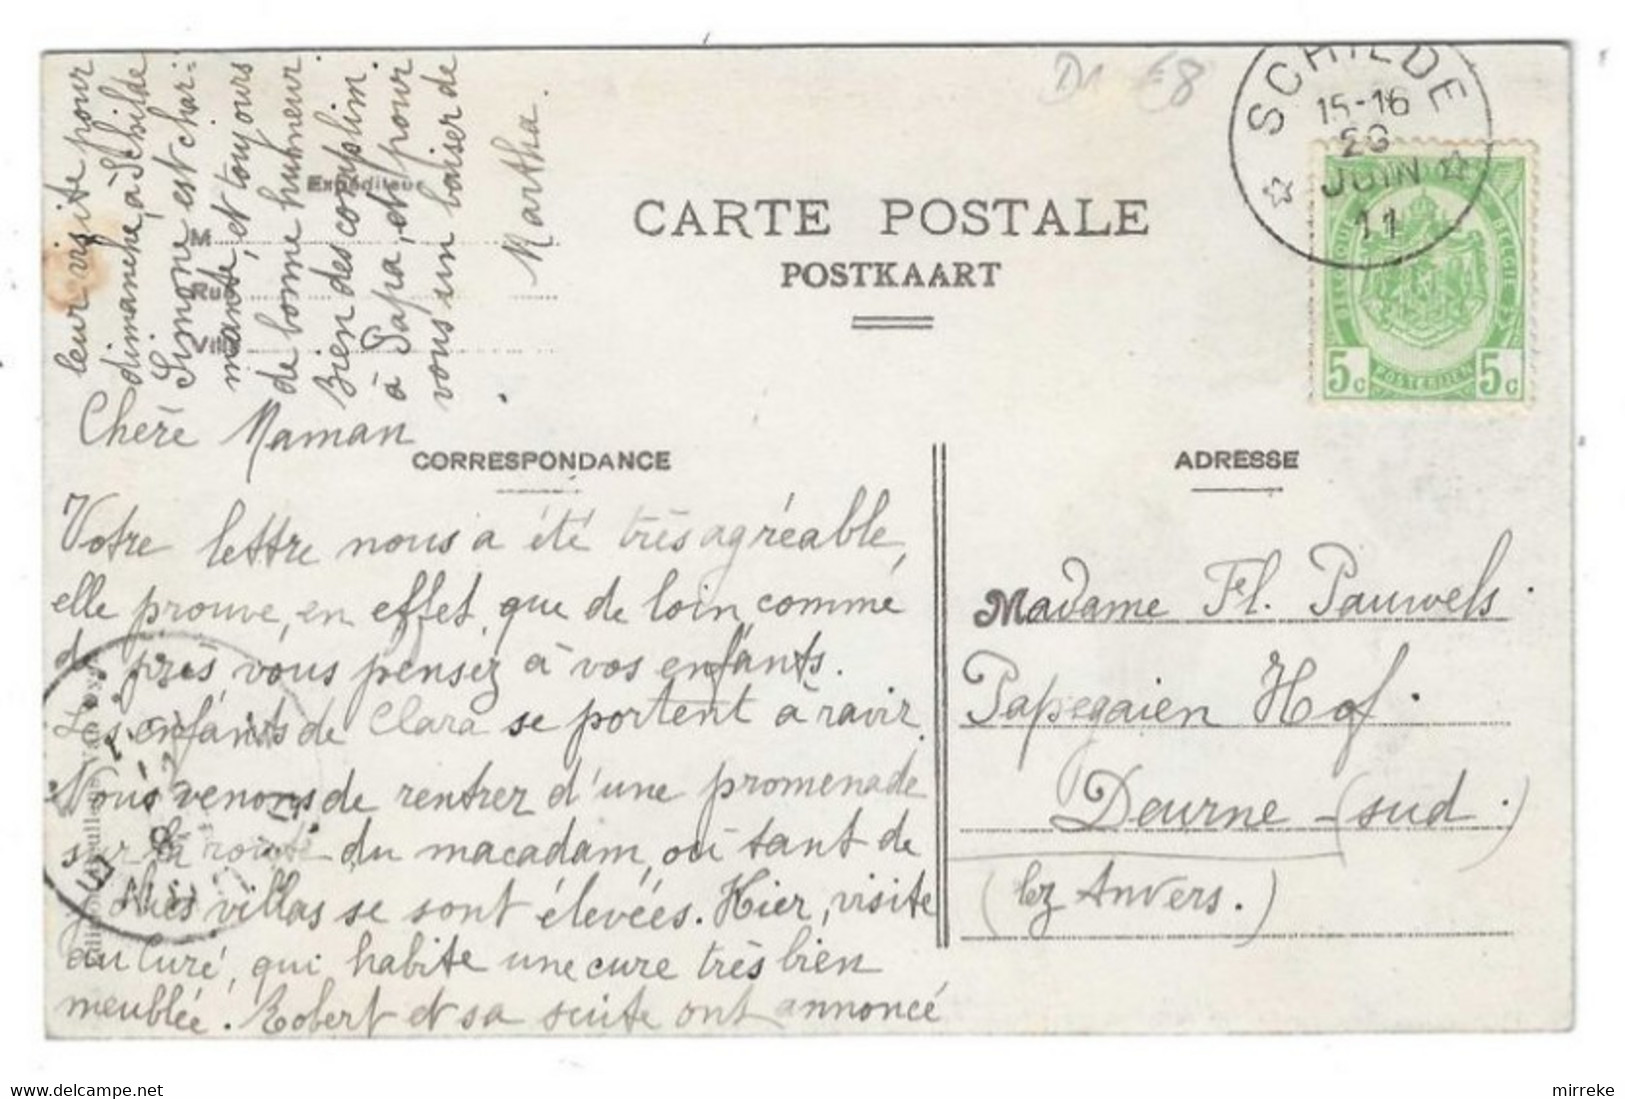 D1 €8
SCHILDE
15-16
JUIN
11
CARTE POSTALE
POSTKAART
BELGIQUE
BELGIE
5c POSTERIJEN 5c
Expéditeur
M
Rue
Ville
Cheré Maman
CORRESPONDANCE
Votre lettre nous a été très agréable,
elle prouve, en effet, que de loin, comme
de près vous pensez à vos enfants.
Les enfants de Clara se portent à ravir.
Nous venons de rentrer d'une promenade
sur la route du macadam, où tant de
jolies villas se sont élevées. Hier, visite
au Curé, qui habite une cure très bien
meublée. Robert et sa suite ont annoncé
leur visite pour
dimanche, à Schilde
Simone est char=
mante, et toujours
de bonne humeur.
Bien des complim.
à Papa, et pour
vous un baiser de
Martha.
ADRESSE
Madame Fl. Pauwels.
Papegaien Hof.
Deurne - (sud.)
(lez Anvers.)
www.delcampe.net
mirreke